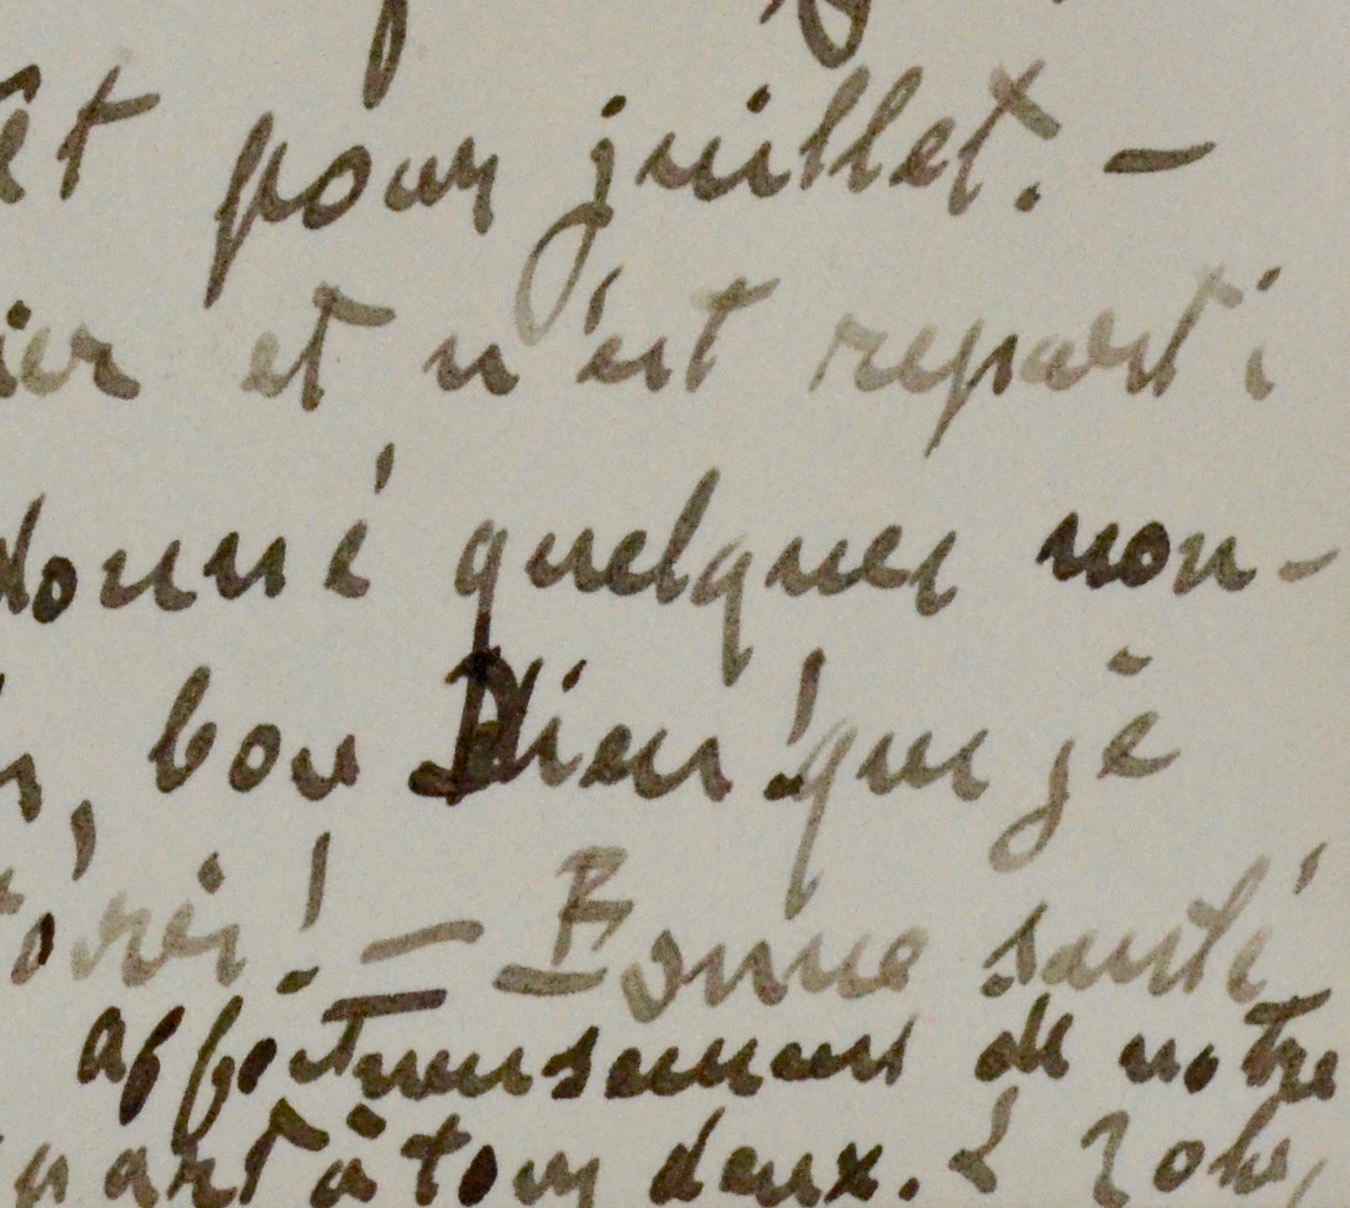 êt pour juillet. —
ier et n'est reparti
donné quelques nou-
, bon Dieu! que je
! — Bonne santé
affectueusement de notre
part à tous deux.